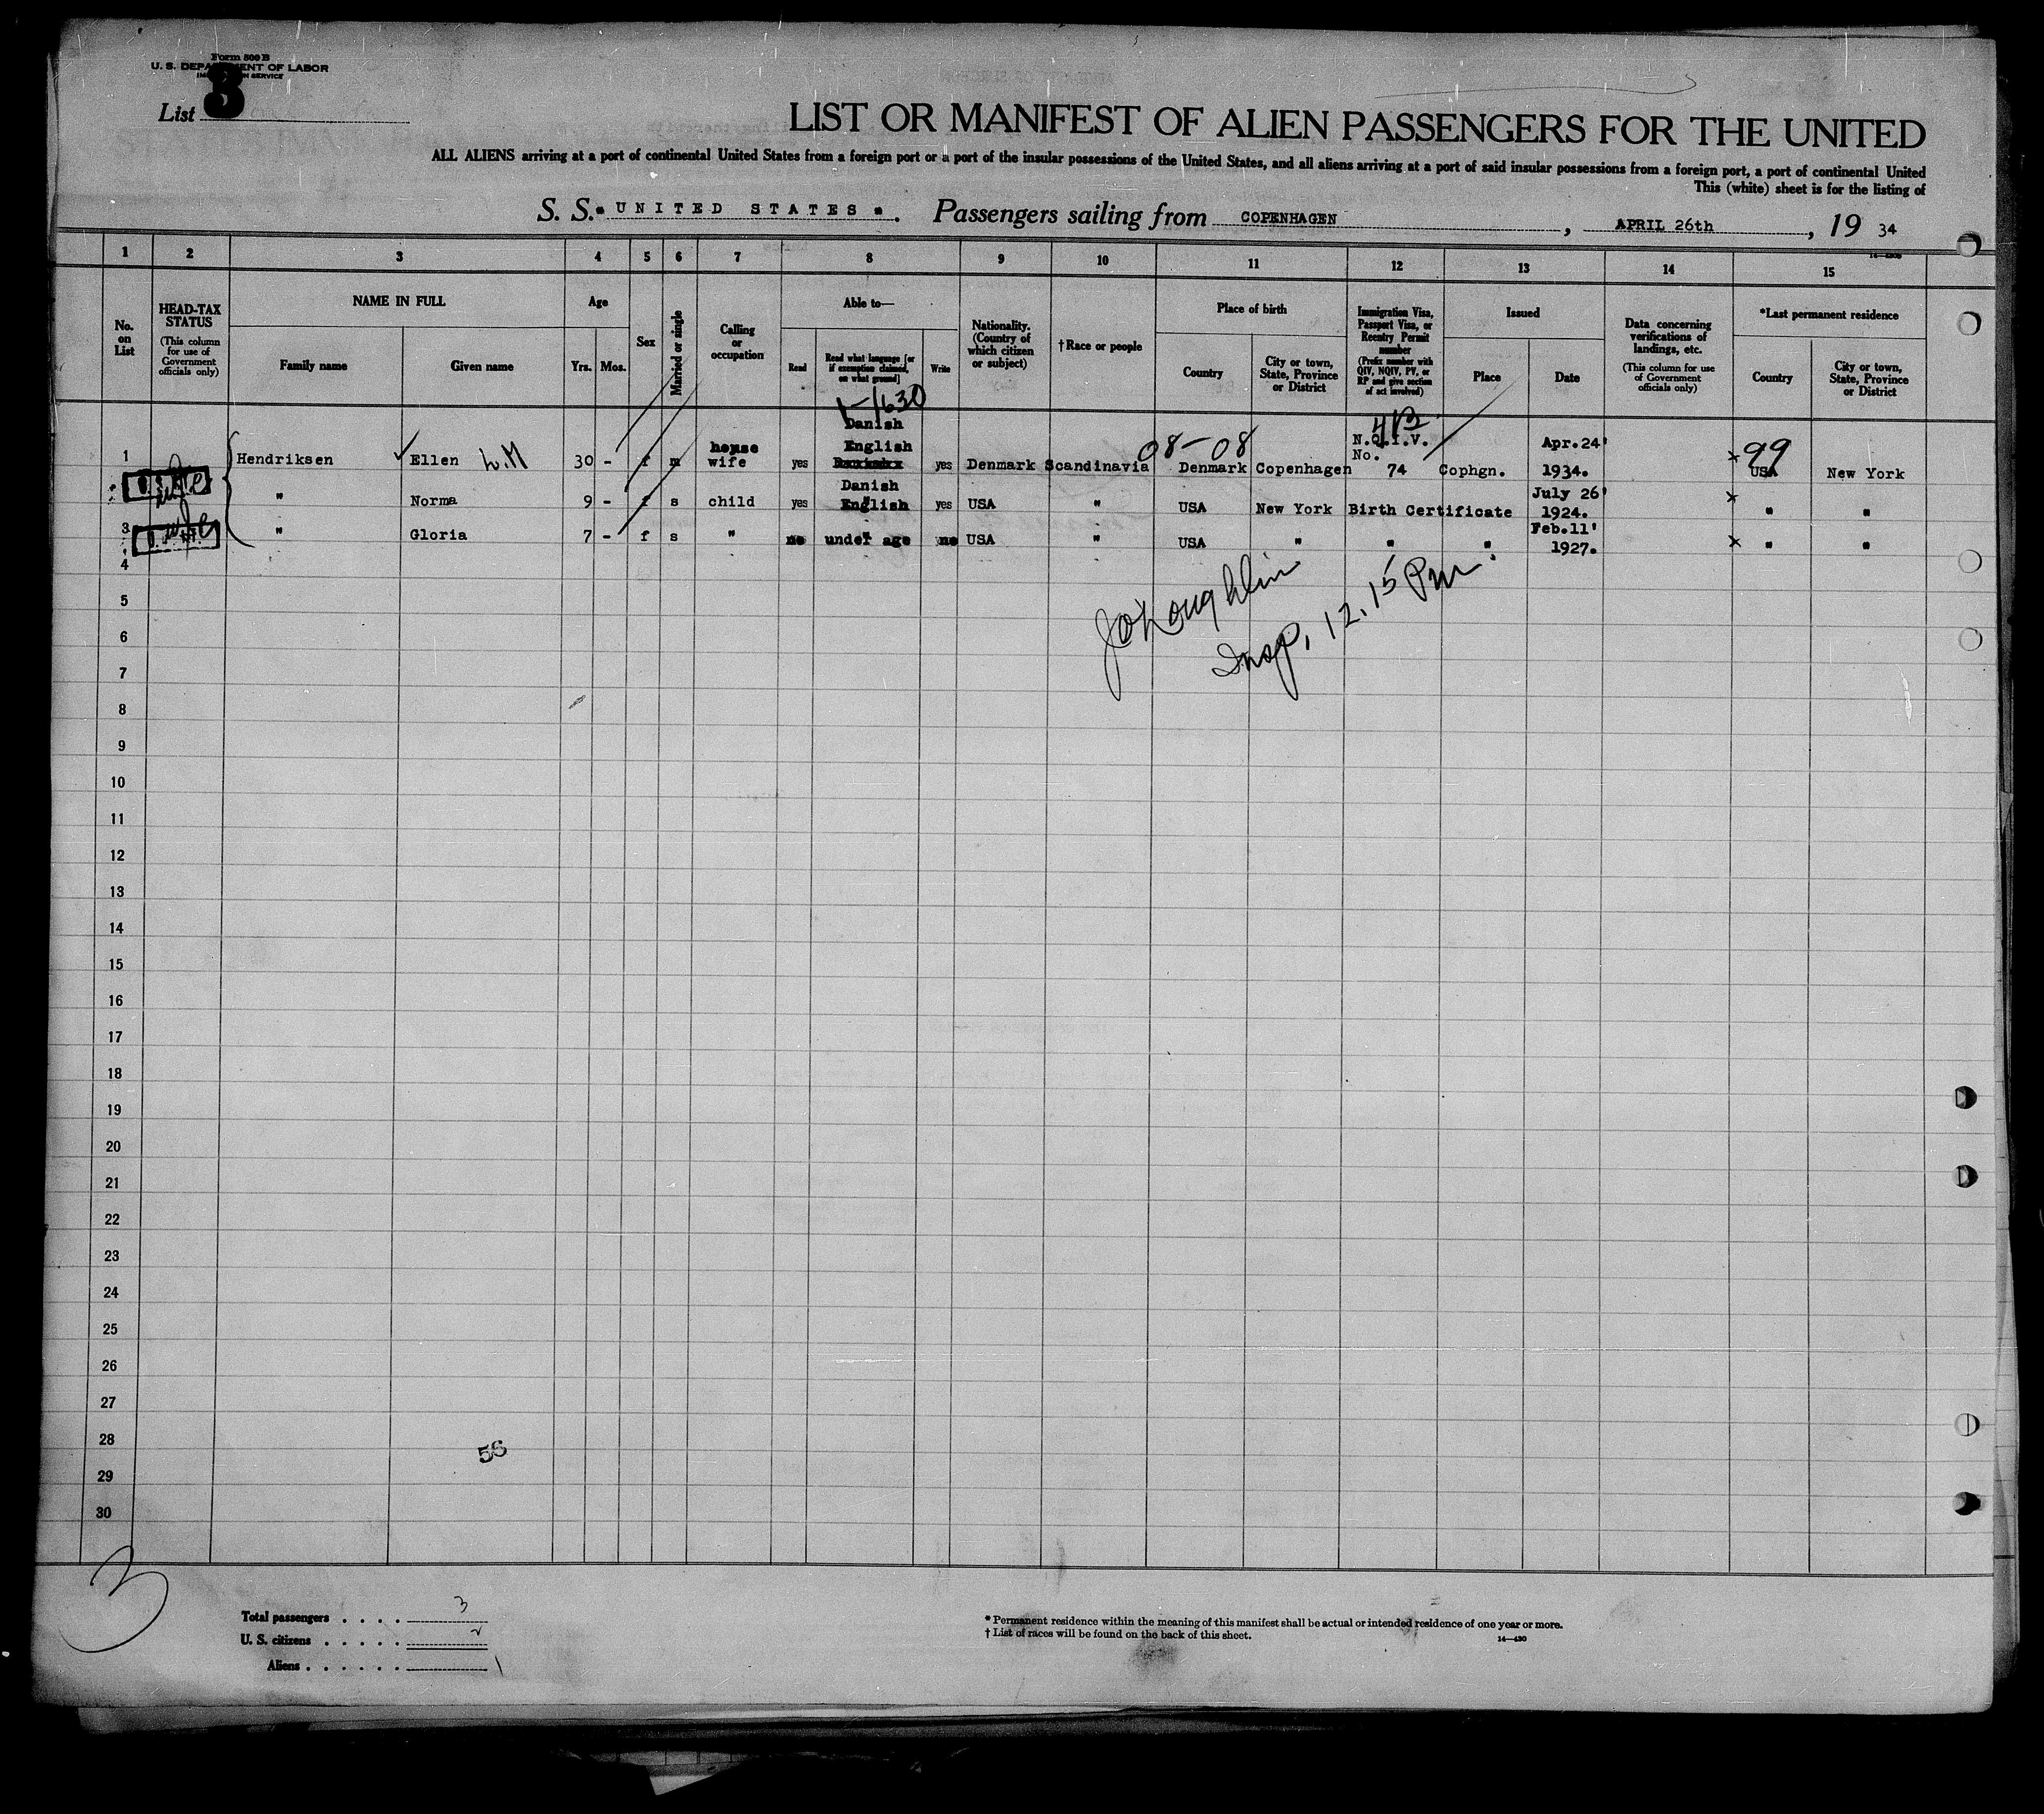 Form 500 B
U. S. DEPARTMENT OF LABOR
IMMIGRATION SERVICE
List 3
LIST OR MANIFEST OF ALIEN PASSENGERS FOR THE UNITED
ALL ALIENS arriving at a port of continental United States from a foreign port or a port of the insular possessions of the United States, and all aliens arriving at a port of said insular possessions from a foreign port, a port of continental United
This (white) sheet is for the listing of
S. S. "UNITED STATES". Passengers sailing from COPENHAGEN, APRIL 26th, 19 34
1 2 3 4 5 6 7 8 9 10 11 12 13 14 15
No. on List
HEAD-TAX STATUS
(This column for use of Government officials only)
NAME IN FULL
Family name
Given name
Age
Yrs. Mos.
Sex
Married or single
Calling or occupation
Able to—
Read
Read what language [or if exemption claimed, on what ground]
Write
Nationality. (Country of which citizen or subject)
† Race or people
Place of birth
Country
City or town, State, Province or District
Immigration Visa, Passport Visa, or Reentry Permit number
(Prefix number with QIV, NQIV, PV, or RP and give section of act involved)
Issued
Place
Date
Data concerning verifications of landings, etc.
(This column for use of Government officials only)
*Last permanent residence
Country
City or town, State, Province or District
1-1630
4B
08-08
99
1 Hendriksen Ellen L.M 30 - f m house wife yes Danish English yes Denmark Scandinavia Denmark Copenhagen N.Q.I.V. No. 74 Cophgn. Apr.24' 1934. x USA New York
" Norma 9 - f s child yes Danish English yes USA " USA New York Birth Certificate July 26' 1924. x " "
3 " Gloria 7 - f s " no under age no USA " USA " " " Feb.11' 1927. x " "
4
JO'Loughlin
Insp. 12.15 Pm.
5
6
7
8
9
10
11
12
13
14
15
16
17
18
19
20
21
22
23
24
25
26
27
28
56
29
30
3
Total passengers . . . . 3
U. S. citizens . . . . . 2
Aliens . . . . . . 1
* Permanent residence within the meaning of this manifest shall be actual or intended residence of one year or more.
† List of races will be found on the back of this sheet.
14—430